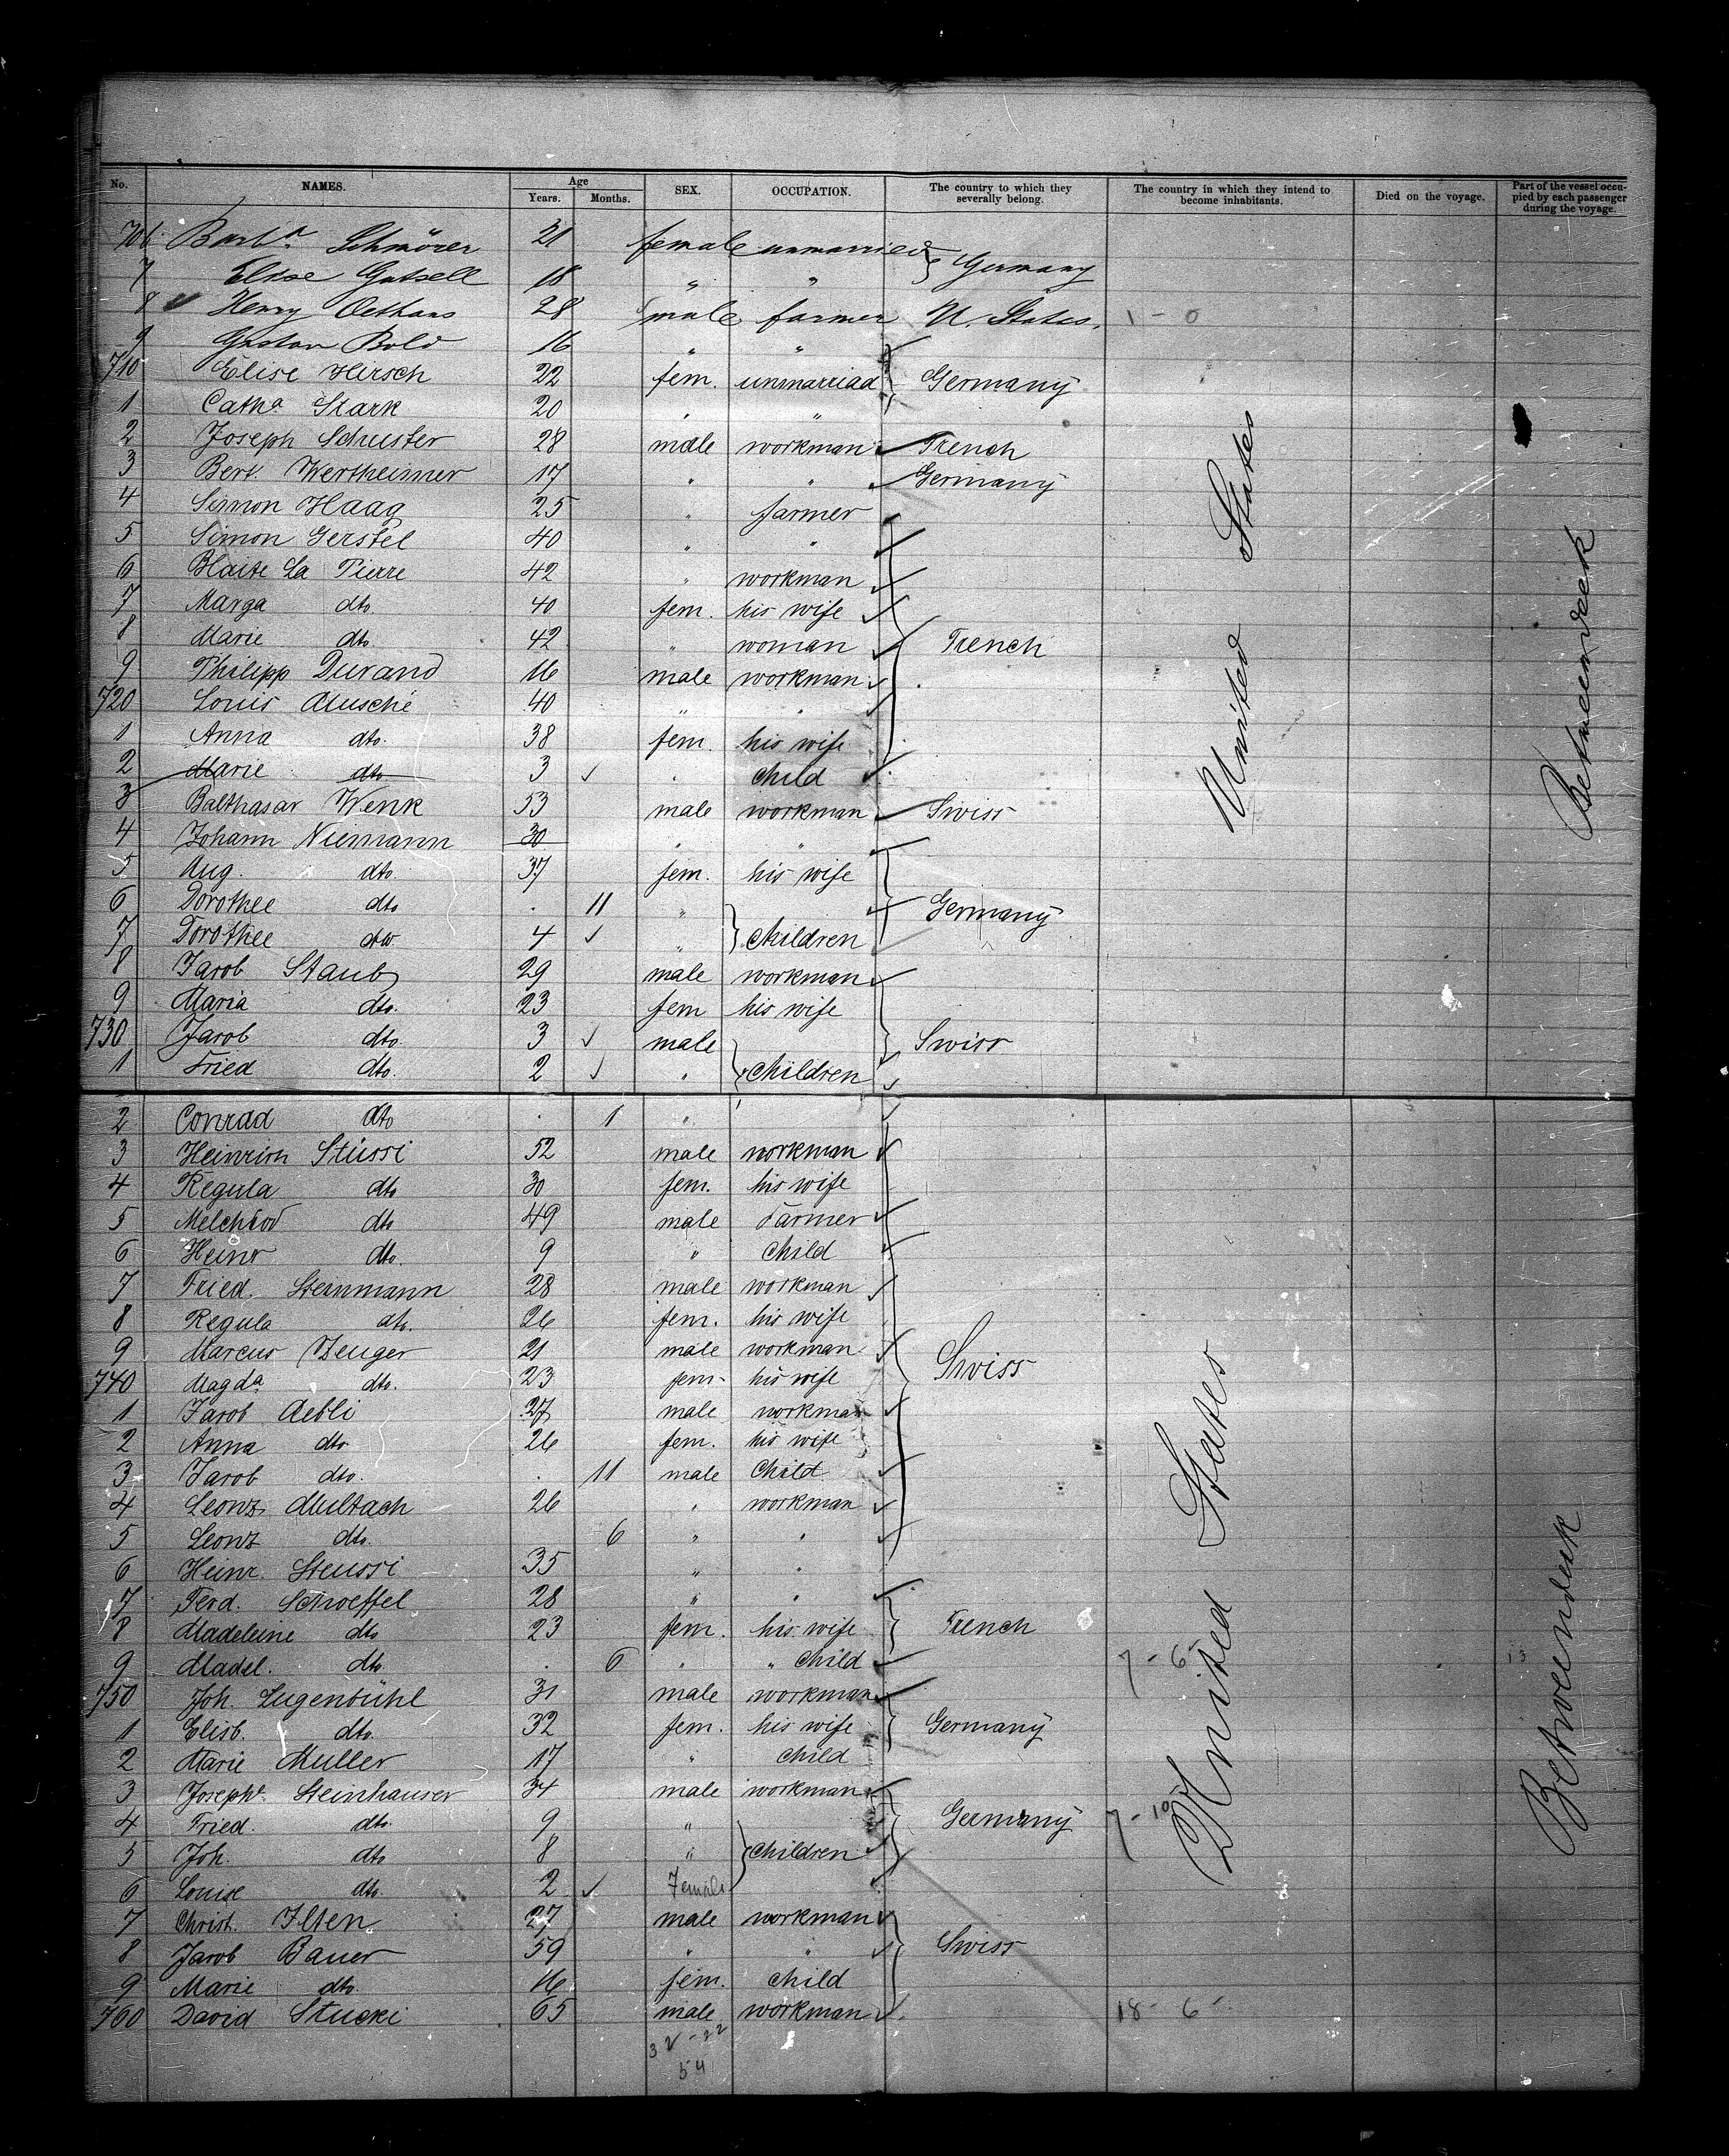 No. NAMES. Age Years. Months. SEX. OCCUPATION. The country to which they severally belong. The country in which they intend to become inhabitants. Died on the voyage. Part of the vessel occupied by each passenger during the voyage.
706 Barba Schmörer 21 female unmarried } Germany
7 Elise Gutsell 18 " "
8 Henry Oethans 28 male farmer U. States. 1 - 0
9 Gustav Bold 16 " "
710 Elise Hirsch 22 fem. unmarried } Germany
1 Catha Stark 20 " "
2 Joseph Schuster 28 male workman French
3 Bert. Wertheimer 17 " " Germany
4 Simon Haag 25 " farmer
5 Simon Gerstel 40 " "
6 Blaise La Pierre 42 " workman
7 Marga dto 40 fem. his wife
8 Marie dto 42 " woman French
9 Philipp Durand 16 male workman
720 Louis Musché 40 " "
1 Anna dto. 38 fem. his wife
2 Marie dto 3 " child
3 Balthasar Wenk 53 male workman Swiss
4 Johann Niemann 30 " "
5 Aug. dto. 37 fem. his wife
6 Dorothee dto . 11 " Germany
7 Dorothee dto. 4 " } children
8 Jacob Staub 29 male workman
9 Maria dto. 23 fem his wife
730 Jacob dto 3 male Swiss
1 Fried dto. 2 " } children
United States
Betweendeck
2 Conrad dto . 1 "
3 Heinrich Stüssi 52 male workman
4 Regula dto 30 fem. his wife
5 Melchior dto 49 male Farmer
6 Heinr dto. 9 " child
7 Fried. Steinmann 28 male workman
8 Regula dto. 26 fem. his wife
9 Marcus Zeuger 21 male workman Swiss
740 Magda dto. 23 fem. his wife
1 Jacob Aebli 27 male workman
2 Anna dto 26 fem. his wife
3 Jacob dto. . 11 male child
4 Leonz Multach 26 " workman
5 Leonz dto. 6 " "
6 Heinr. Steussi 35 " "
7 Ferd. Schoeffel 28 " "
8 Madeleine dto 23 fem. his wife French
9 Madel. dto. . 6 " " child 7 - 6 13
750 Joh. Lugenbühl 31 male workman
1 Elisb. dto. 32 fem. his wife Germany
2 Marie Muller 17 " child
3 Joseph Steinhauser 34 male workman
4 Fried. dto. 9 " Germany 7 - 10
5 Joh. dto 8 " } children
6 Louise dto. 2 Female
7 Christ. Ilten 27 male workman
8 Jacob Bauer 59 " " Swiss
9 Marie dto. 16 fem. child
760 David Stucki 65 male workman 18 - 6
United States
Betweendeck
32 - 22
54